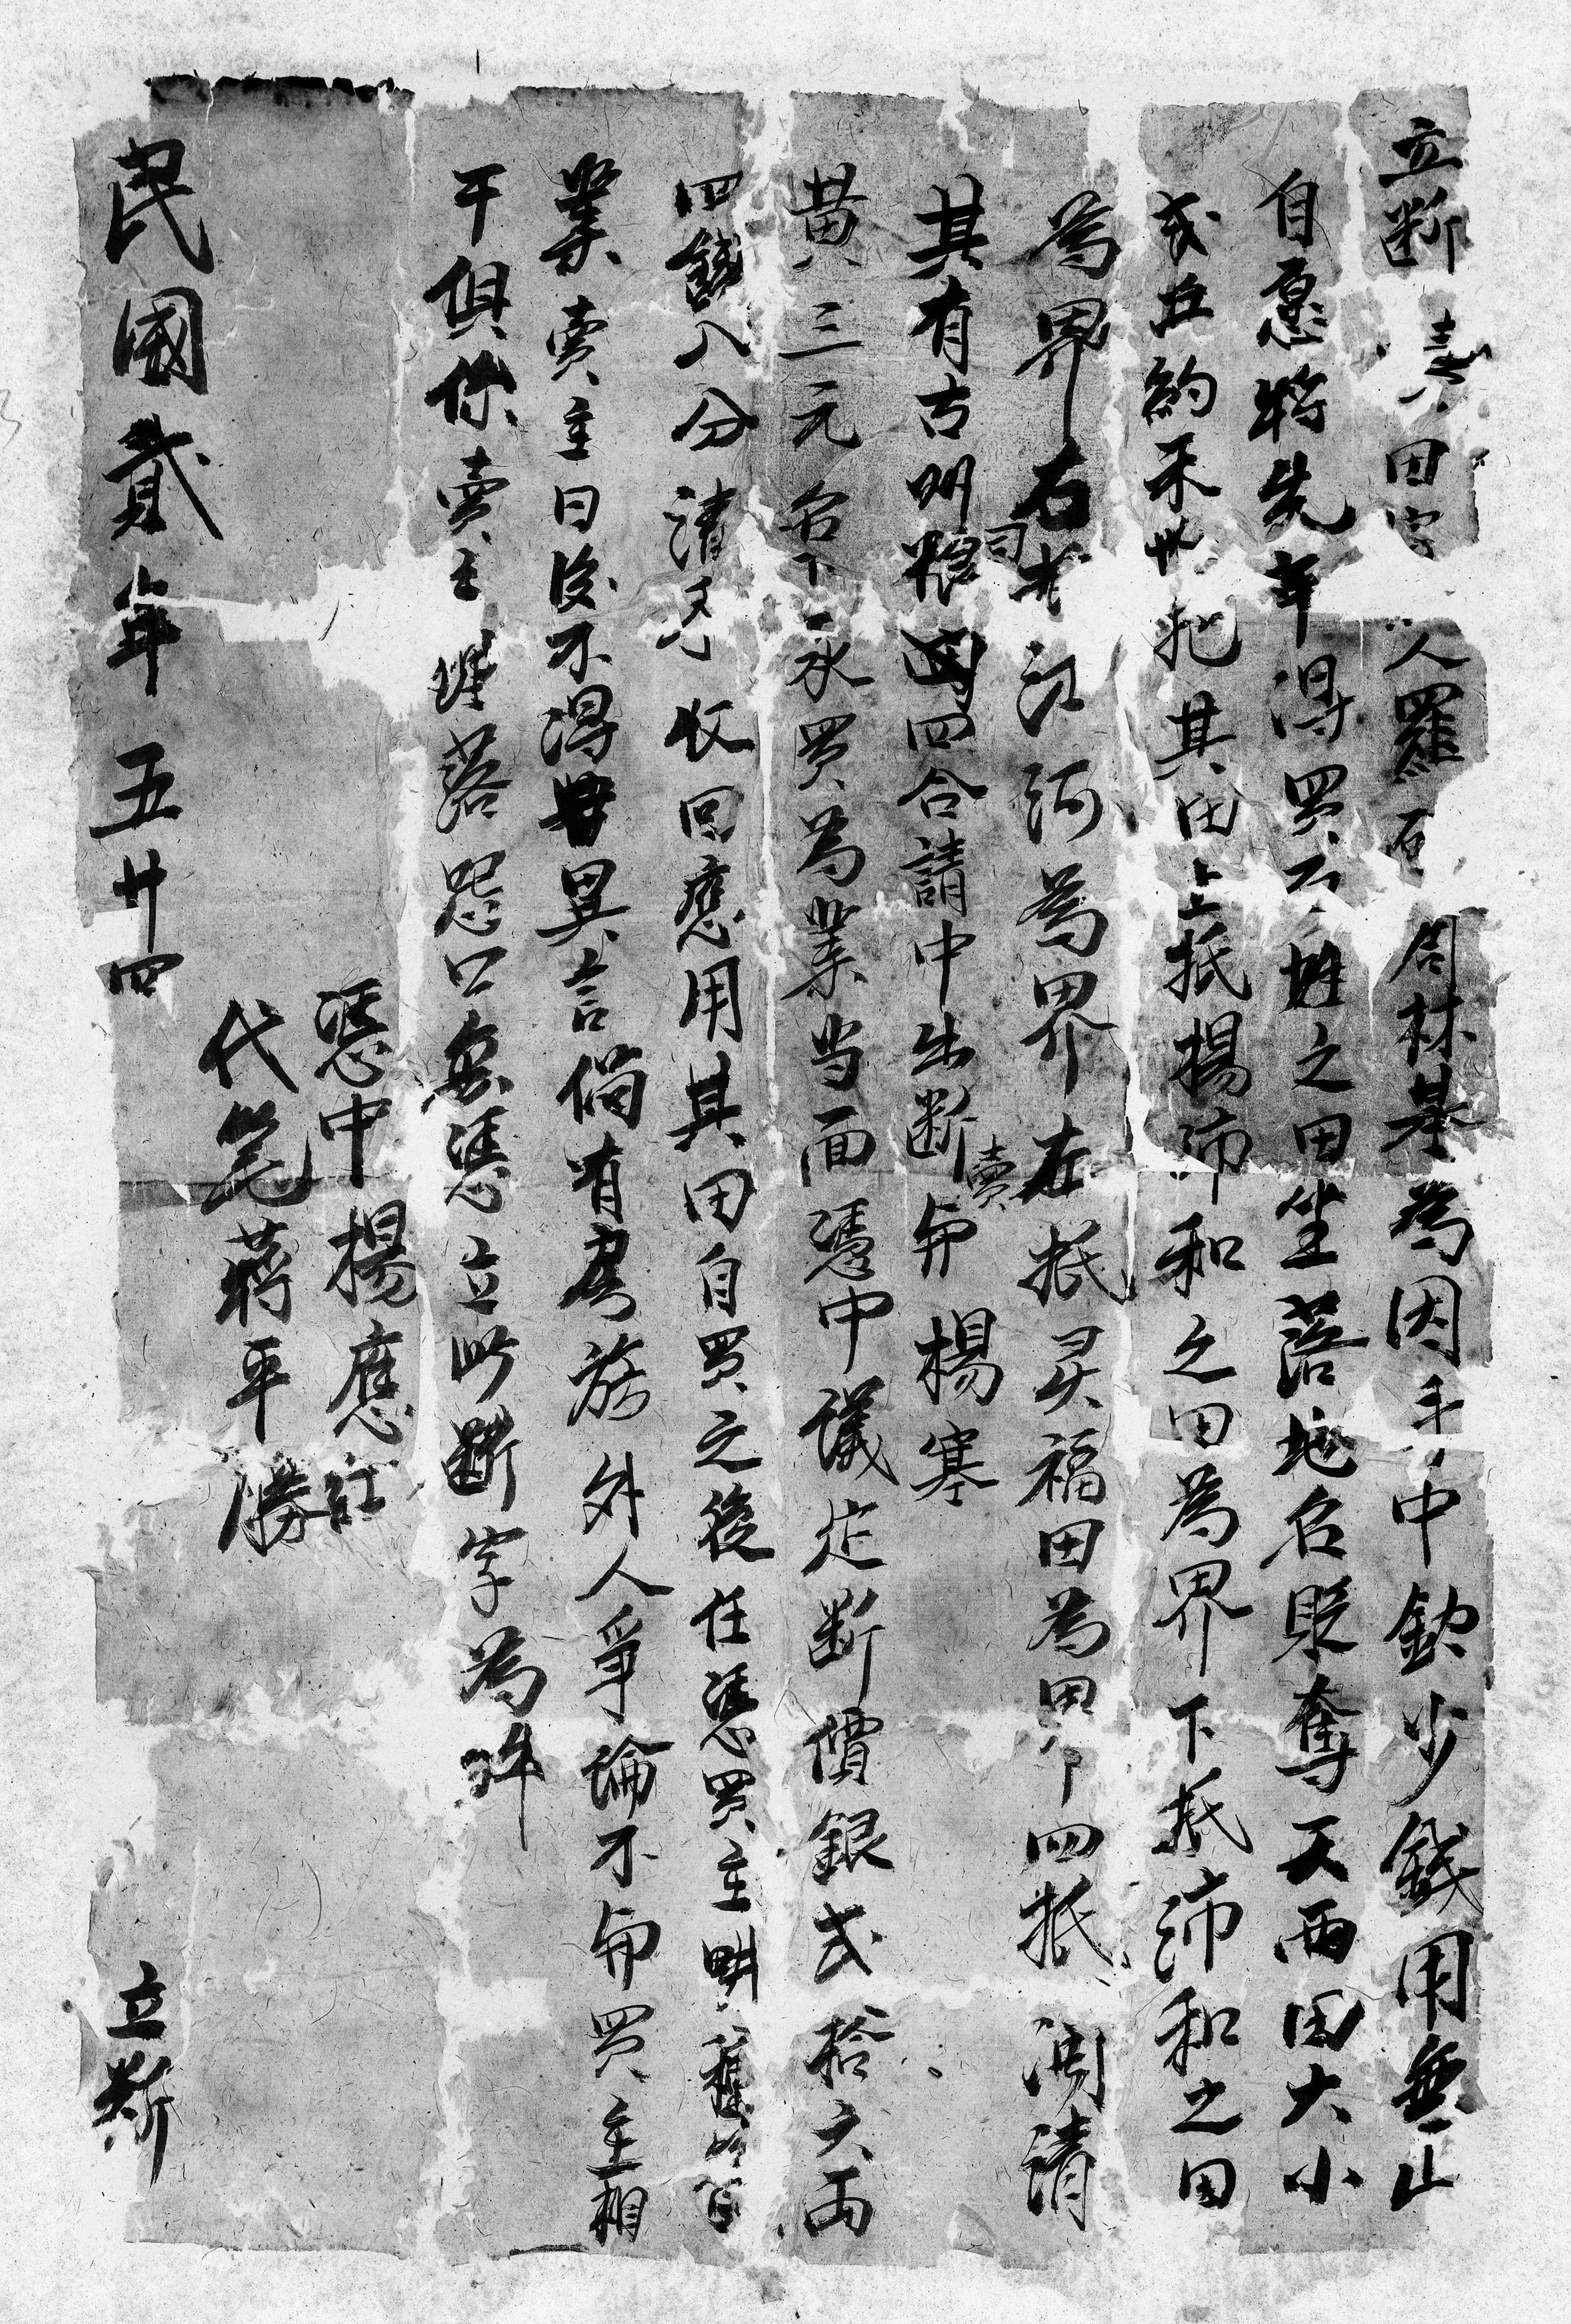 立断賣田字人羅石周林基為因手中欽少錢用無出
自愿將先年得買不姓之田坐落地名貶奪天両田大小
弍丘約禾卅把其田上抵楊沛和之田為界下抵沛和之田
為界右抵江河為界在抵灵福田為界四抵淍清
其有古明粮四合請中出断賣與楊塞
黄三元名下永買為業当面憑中議定断價銀弍拾六両
四錢八分清手收回應用其田自買之後任憑買主畊種管
業賣主日後不得異言倘有房族外人爭論不與買主相
干俱係賣主理落恐口無憑立此断字為㨿
憑中楊應江
代笔蔣平勝
民國貳年五廿四 立断